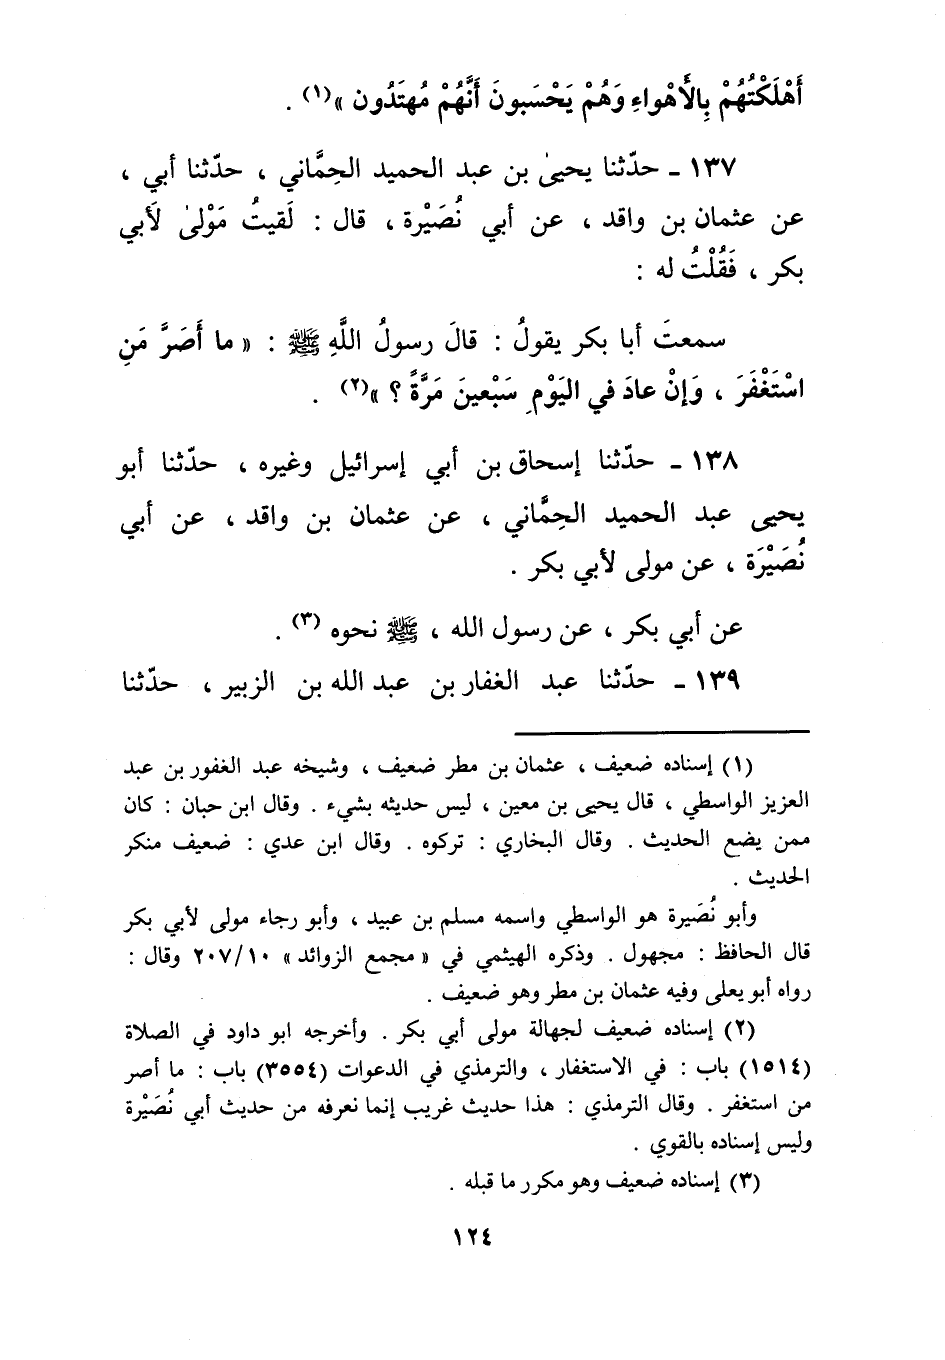 أَهْلَكْتُهُمْ بِالأَهْواءِ وَهُمْ يَحْسَبونَ أَنَّهُمْ مُهتَدُون »(١) .
١٣٧ ـ حدّثنا يحيىٰ بن عبد الحميد الحِمَّاني ، حدّثنا أبي ،
عن عثمان بن واقد ، عن أبي نُصَيْرة ، قال : لَقيتُ مَوْلىٰ لَأبي
بكر ، فَقُلْتُ له :
سمعتَ أبا بكر يقولُ : قالَ رسولُ اللَّهِ ﷺ : « ما أَصَرَّ مَنِ
اسْتَغْفَرَ ، وَإنْ عادَ في اليَوْمِ سَبْعينَ مَرَّةً ؟ »(٢) .
١٣٨ ـ حدّثنا إسحاق بن أبي إسرائيل وغيره ، حدّثنا أبو
يحيى عبد الحميد الحِمَّاني ، عن عثمان بن واقد ، عن أبي
نُصَيْرَة ، عن مولى لأبي بكر .
عن أبي بكر ، عن رسول الله ، ﷺ نحوه (٣) .
١٣٩ ـ حدّثنا عبد الغفار بن عبد الله بن الزبير ، حدّثنا
(١) إسناده ضعيف ، عثمان بن مطر ضعيف ، وشيخه عبد الغفور بن عبد
العزيز الواسطي ، قال يحيى بن معين ، ليس حديثه بشيء . وقال ابن حبان : كان
ممن يضع الحديث . وقال البخاري : تركوه . وقال ابن عدي : ضعيف منكر
الحديث .
وأبو نُصَيرة هو الواسطي واسمه مسلم بن عبيد ، وأبو رجاء مولى لأبي بكر
قال الحافظ : مجهول . وذكره الهيثمي في « مجمع الزوائد » ٢٠٧/١٠ وقال :
رواه أبو يعلى وفيه عثمان بن مطر وهو ضعيف .
(٢) إسناده ضعيف لجهالة مولى أبي بكر . وأخرجه ابو داود في الصلاة
(١٥١٤) باب : في الاستغفار ، والترمذي في الدعوات (٣٥٥٤) باب : ما أصر
من استغفر . وقال الترمذي : هذا حديث غريب إنما نعرفه من حديث أبي نُصَيْرة
وليس إسناده بالقوي .
(٣) إسناده ضعيف وهو مكرر ما قبله .
١٢٤